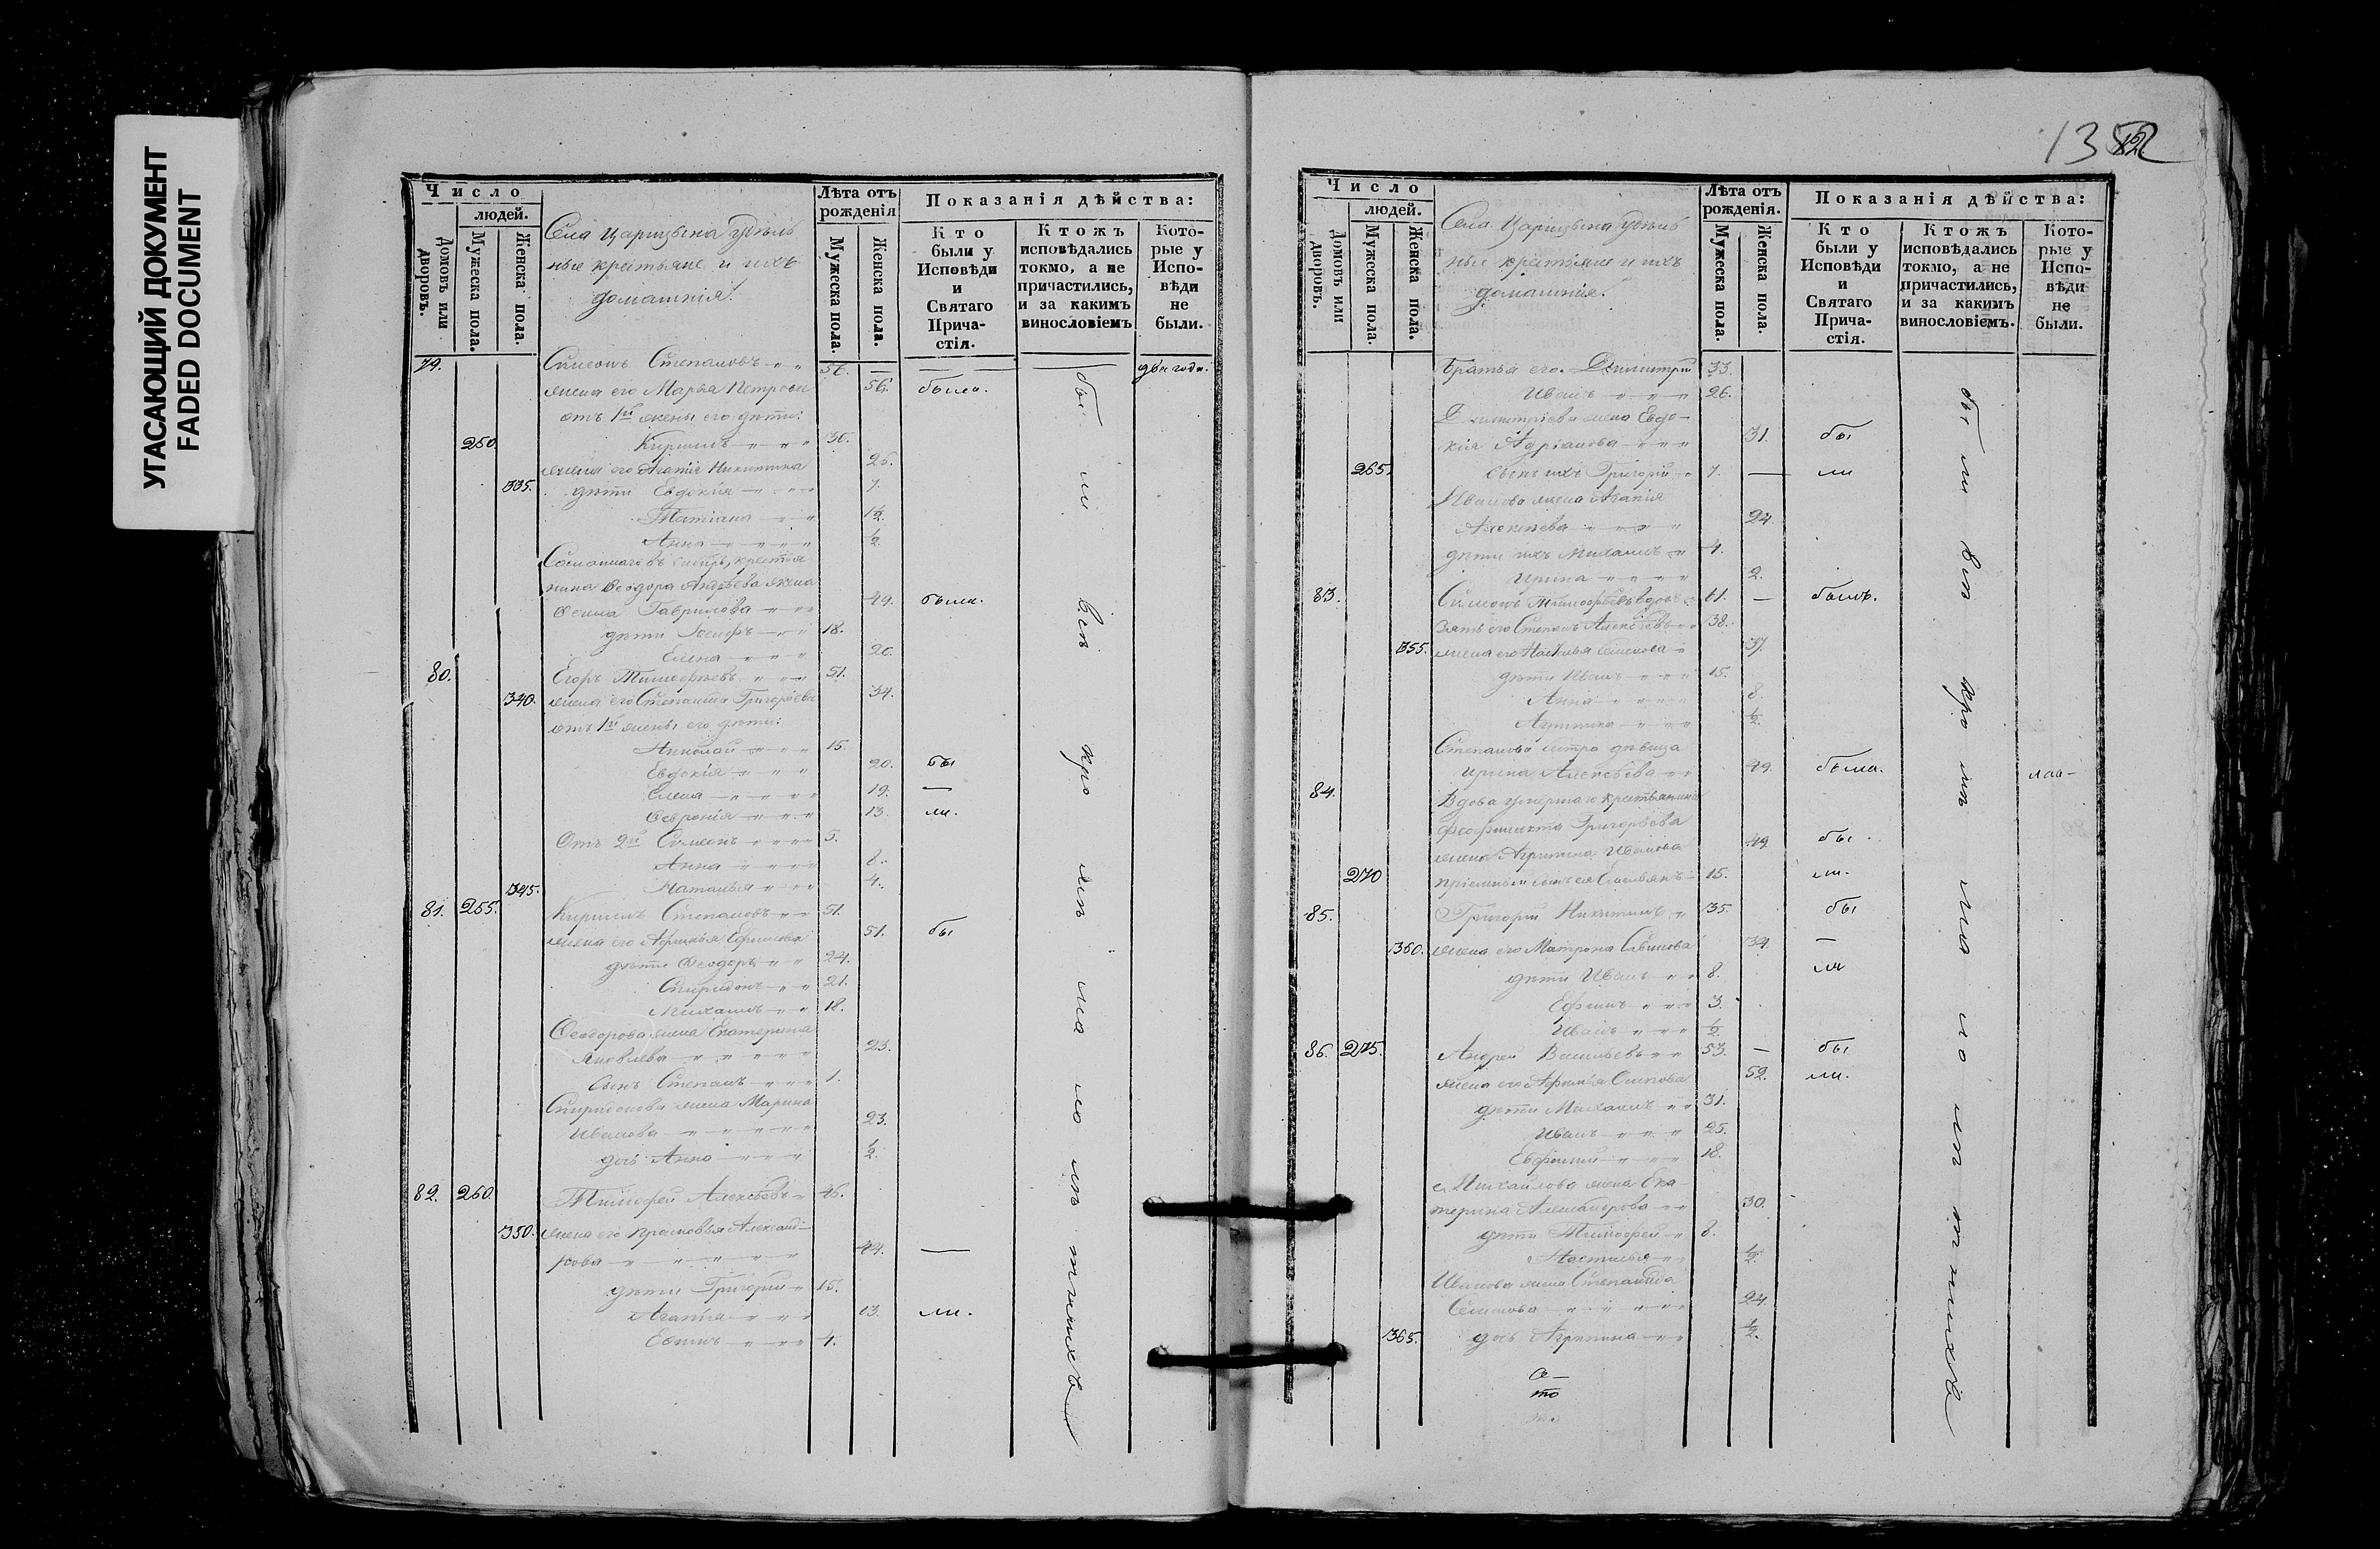 УГАСАЮЩИЙ ДОКУМЕНТ
FADED DOCUMENT
Число
людей.
Домовъ или дворовъ.
Мужеска пола.
Женска пола.
Села Царицына удѣль
ные крестьяне и ихъ
домашнія.
Лѣта отъ
рожденія
Мужеска пола.
Женска пола.
Показанія дѣйства:
Кто
были у
Исповѣди
и
Святаго
Прича-
стія.
Ктожъ
исповѣдались
токмо, а не
причастились,
и за какимъ
винословіемъ
Кото-
рые у
Испо-
вѣди
не
были.
79. Симеонъ Степановъ 56. — — два года.
жена его Марья Петрова 56. была.
отъ 1й жены его дѣти:
250 Кирилъ 30.
жена его Агапія Никитина 26.
335. дѣти Евдокія 7.
Татіана 1½
Анна ½
Сосланнаго въ Сибирь, крестья
нина Ѳеодора Андреева жена
Гаврилова 49. была.
дѣти Іосифъ 18.
Елена 20.
80. Егоръ Тимофѣевъ 51.
340. жена его Степанида Григорьева 34.
отъ 1й жены его дѣти:
Николай 15.
Евдокія 20. бы
Елена 19. —
Ѳевронія 13. ли.
Отъ 2й Симеонъ 5.
Анна 8.
345. Наталья 4.
81. 255. Кирилъ Степановъ 51.
жена его Афимья Ефимова 51. бы
дѣти Ѳеодоръ 24.
Спиридонъ 21.
Михаилъ 18.
Ѳеодорова жена Екатерина
Яковлева 23.
Сынъ Степанъ 1.
Спиридонова жена Марина
Иванова 23.
дочь Анна ½
82. 260 Тимофей Алексѣевъ 46.
350. жена его Прасковья Александ-
рова 44. —
дѣти Григорій 15.
Агапія 13. ли.
4.
бы ли всѣ кро мѣ ма ло лѣ тнихъ
13
Число
людей.
Домовъ или дворовъ.
Мужеска пола.
Женска пола.
Села Царицына удѣль
ные крестьяне и ихъ
домашнія.
Лѣта отъ
рожденія.
Мужеска пола.
Женска пола.
Показанія дѣйства:
Кто
были у
Исповѣди
и
Святаго
Прича-
стія.
Ктожъ
исповѣдались
токмо, а не
причастились,
и за какимъ
винословіемъ.
Кото-
рые у
Испо-
вѣди
не
были.
Братья его. Димитрій 33.
Иванъ 26.
Димитріева жена Евдо-
кія Адріанова 31. бы
265. сынъ ихъ Григорій 7. — ли
Иванова жена Агапія
Алексѣева 24.
дѣти ихъ Михаилъ 4.
Ирина 2.
83. Симеонъ Тимофѣевъ вдовъ 61. — былъ.
Зять его Степанъ Алексѣевъ 38.
355. жена его Настасья Семенова 37.
дѣти Иванъ 15.
Анна 8.
Агрипина ½
Степанова сестра дѣвица
Ирина Алексѣева 49. была.
84. Вдова умершаго крестьянина
Феофилакта Григорьева
жена Агрипина Иванова 49 бы
270 пріемный сынъ ея 15. ли.
85. Григорій Никитинъ 35. бы
360. жена его Матрона Савинова 34. —
дѣти Иванъ 8. ли
Ефимъ 3.
Иванъ ½
86. 275. Андрей Васильевъ 53. — бы
жена его Афимья Осипова 52. ли.
дѣти Михаилъ 31.
Иванъ 25.
Евфимій 18.
Михайлова жена Ека-
терина Александрова 30.
дѣти Тимофей 8.
Настасья ½
Иванова жена Степанида
Семенова 24.
365. дочь Агрипина ½
бы ли всѣ кро мѣ ма ло лѣ тнихъ